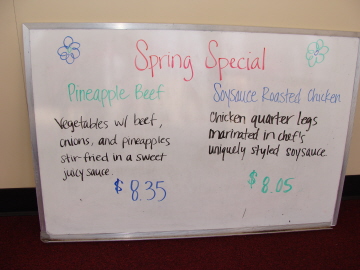 Spring Special
Pineapple Beef
Vegetables w/ beef,
onions, and pineapples
stir-fried in a sweet
juicy sauce.
$8.35
Soysauce Roasted Chicken
Chicken quarter legs
marinated in chef's
uniquely styled soysauce.
$8.05